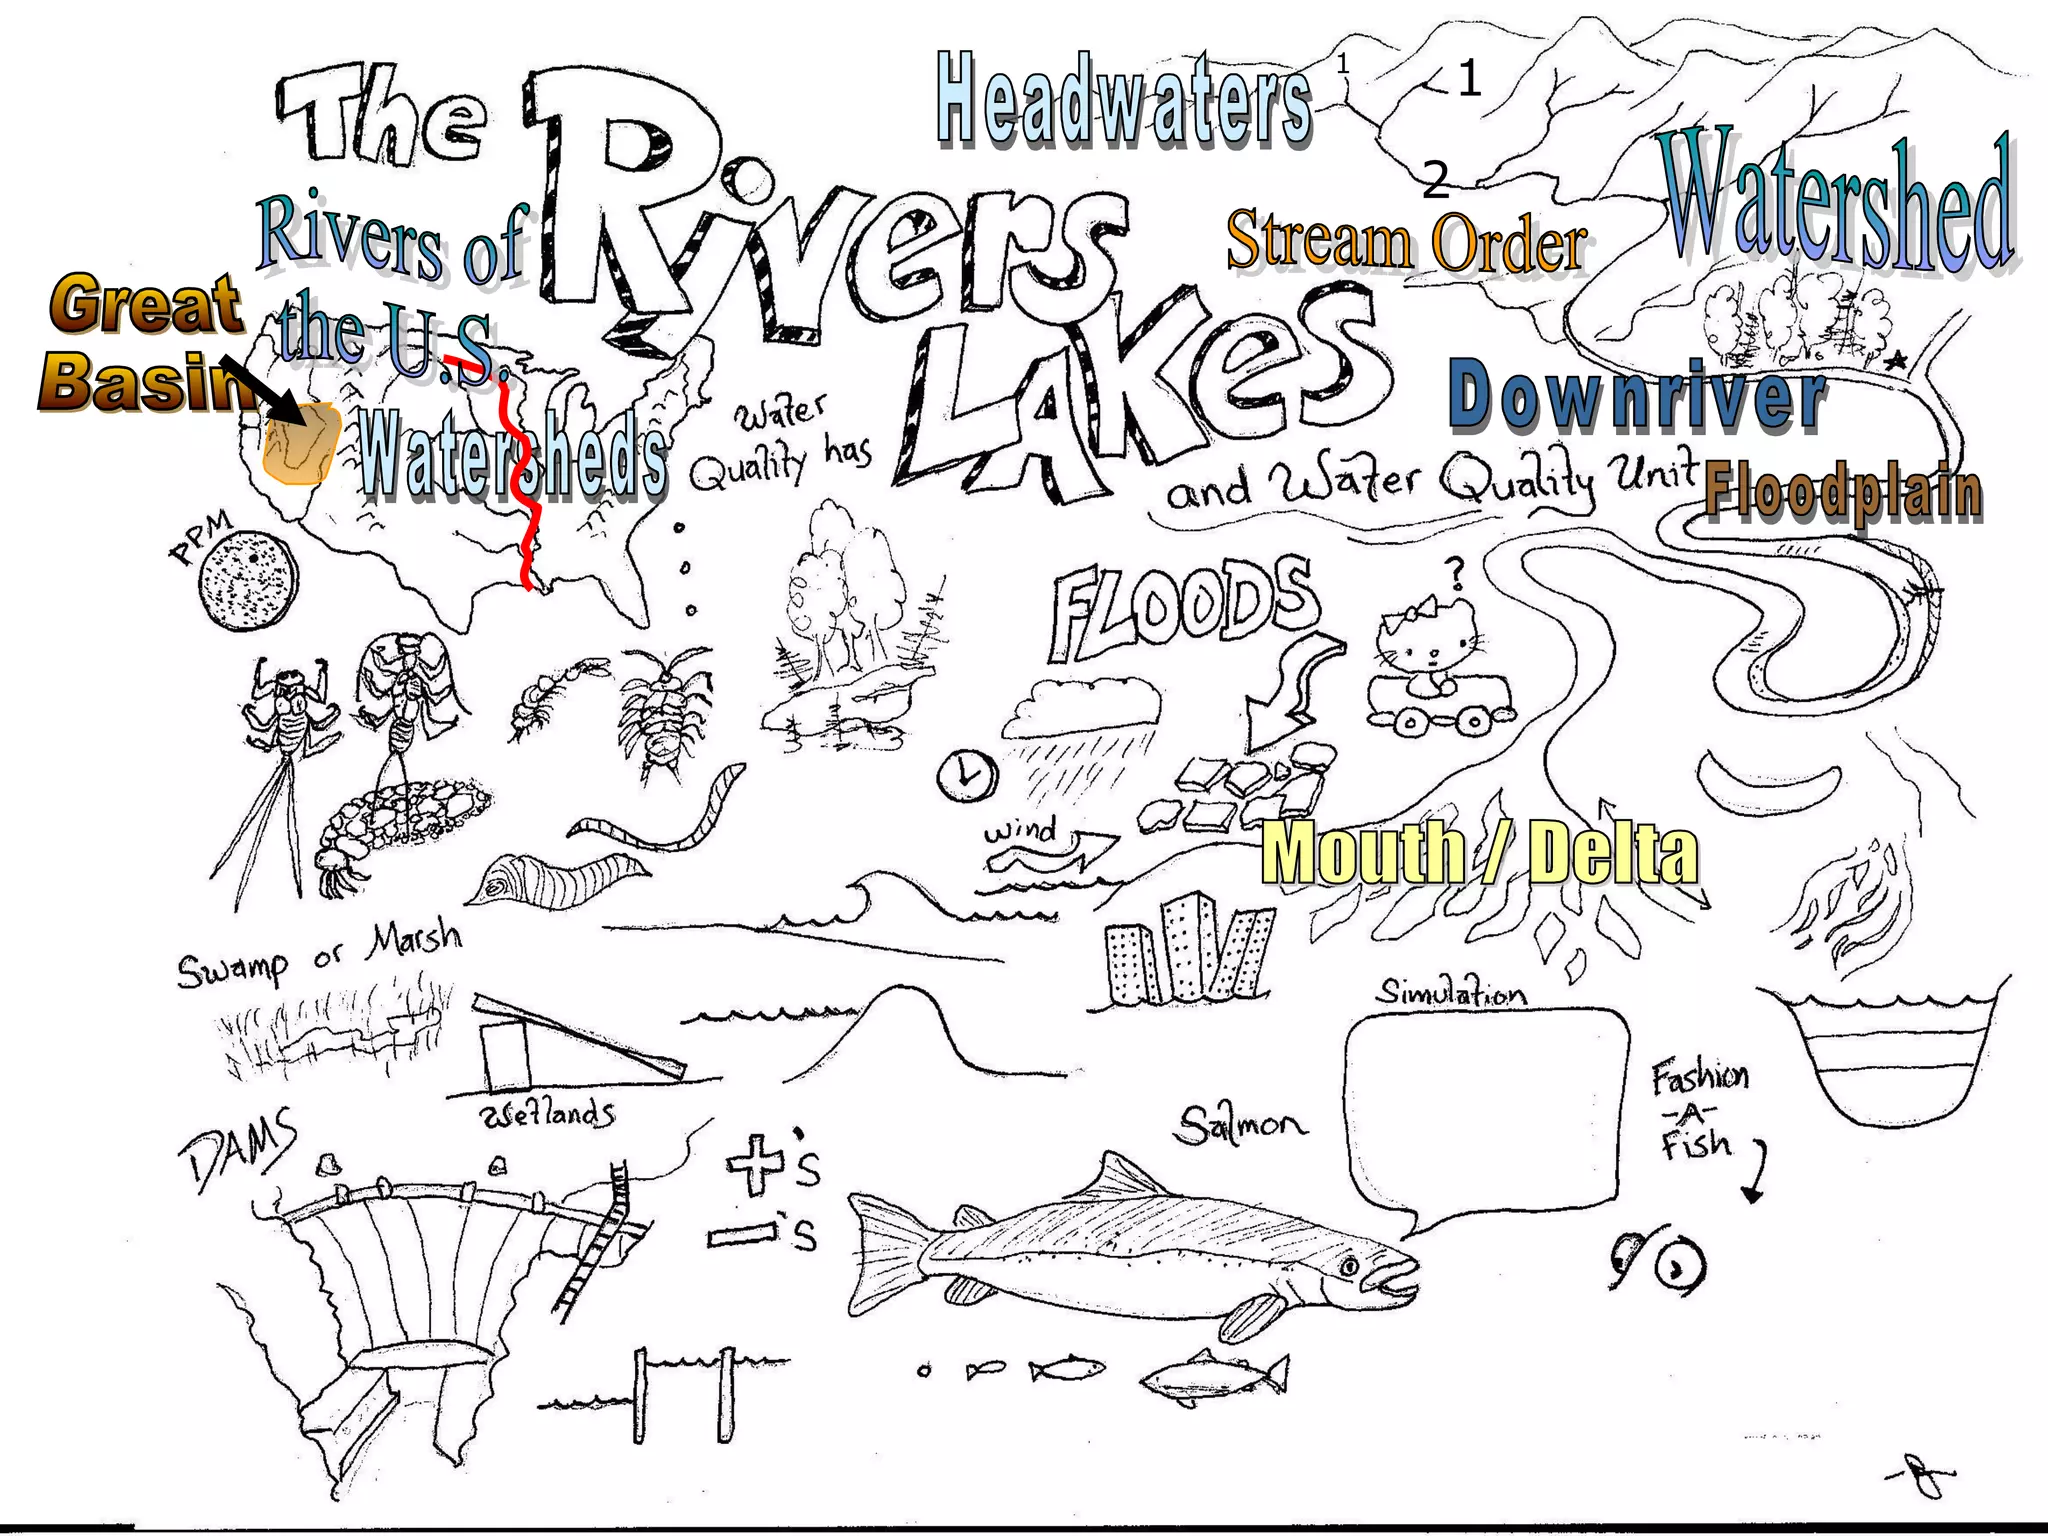 The Rivers
LAKes
and Water Quality Unit
Headwaters
1
1
2
Stream Order
Watershed
Rivers of
the U.S.
Great
Basin
Watersheds
Water
Quality has
Downriver
Floodplain
PPM
FLOODS
?
wind
Mouth / Delta
Swamp or Marsh
Wetlands
Simulation
Fashion
-A-
Fish
DAMS
+'s
-'s
Salmon